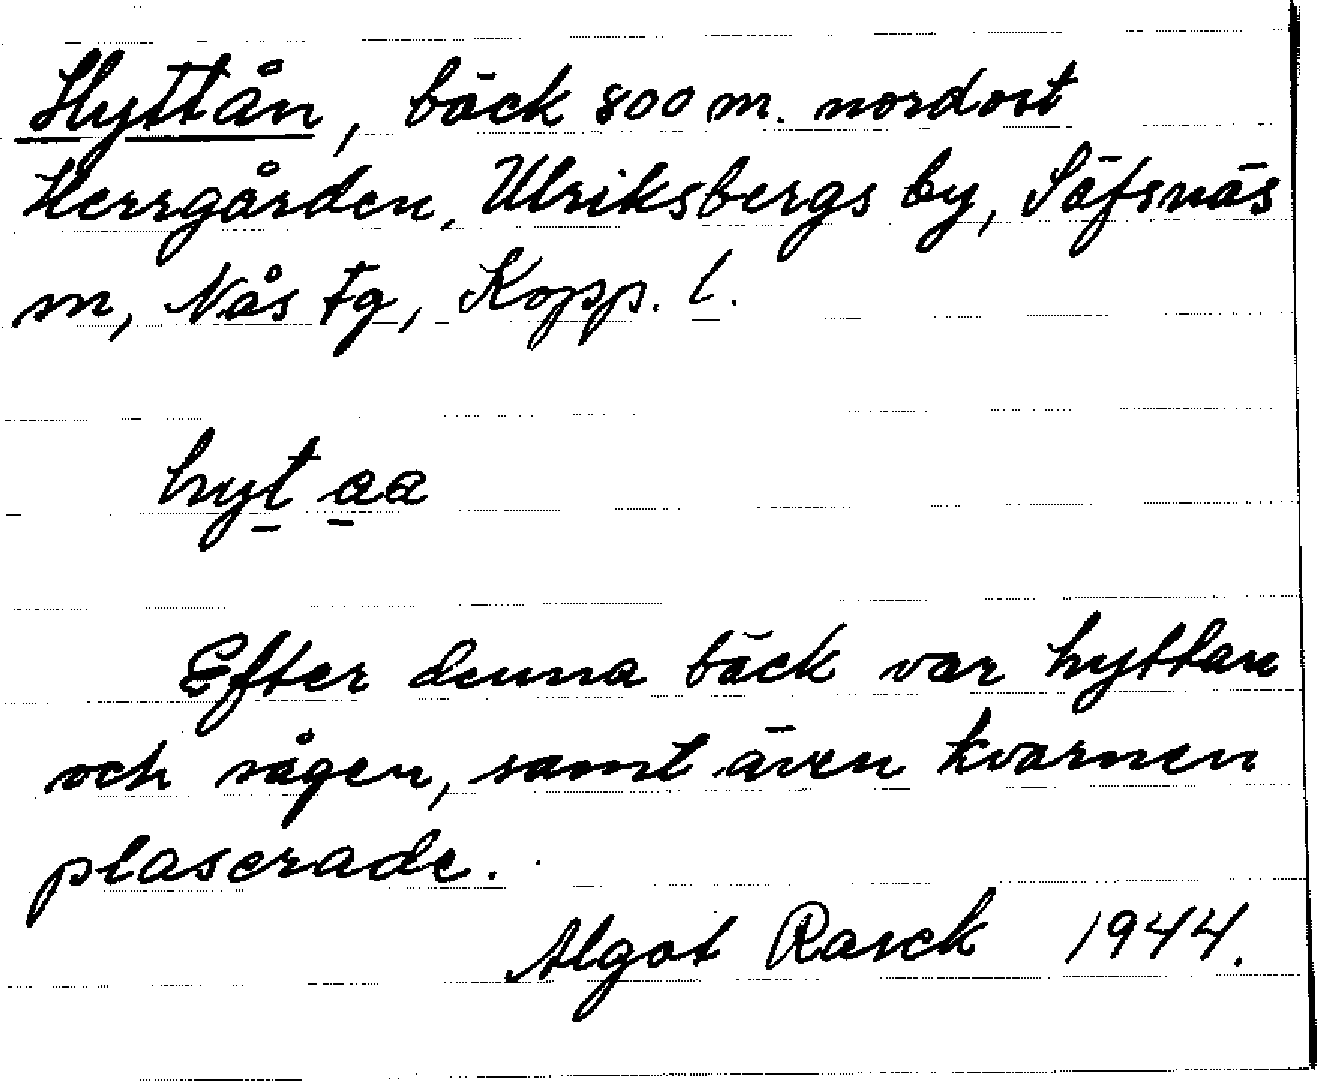 Hyttån, bäck 800 m. nordost
Herrgården, Ulriksbergs by, Säfsnäs
m, Nås tg, Kopp. l.
hyt aa
Efter denna bäck var hyttan
och sågen, samt även kvarnen
plaserade.
Algot Rasck 1944.